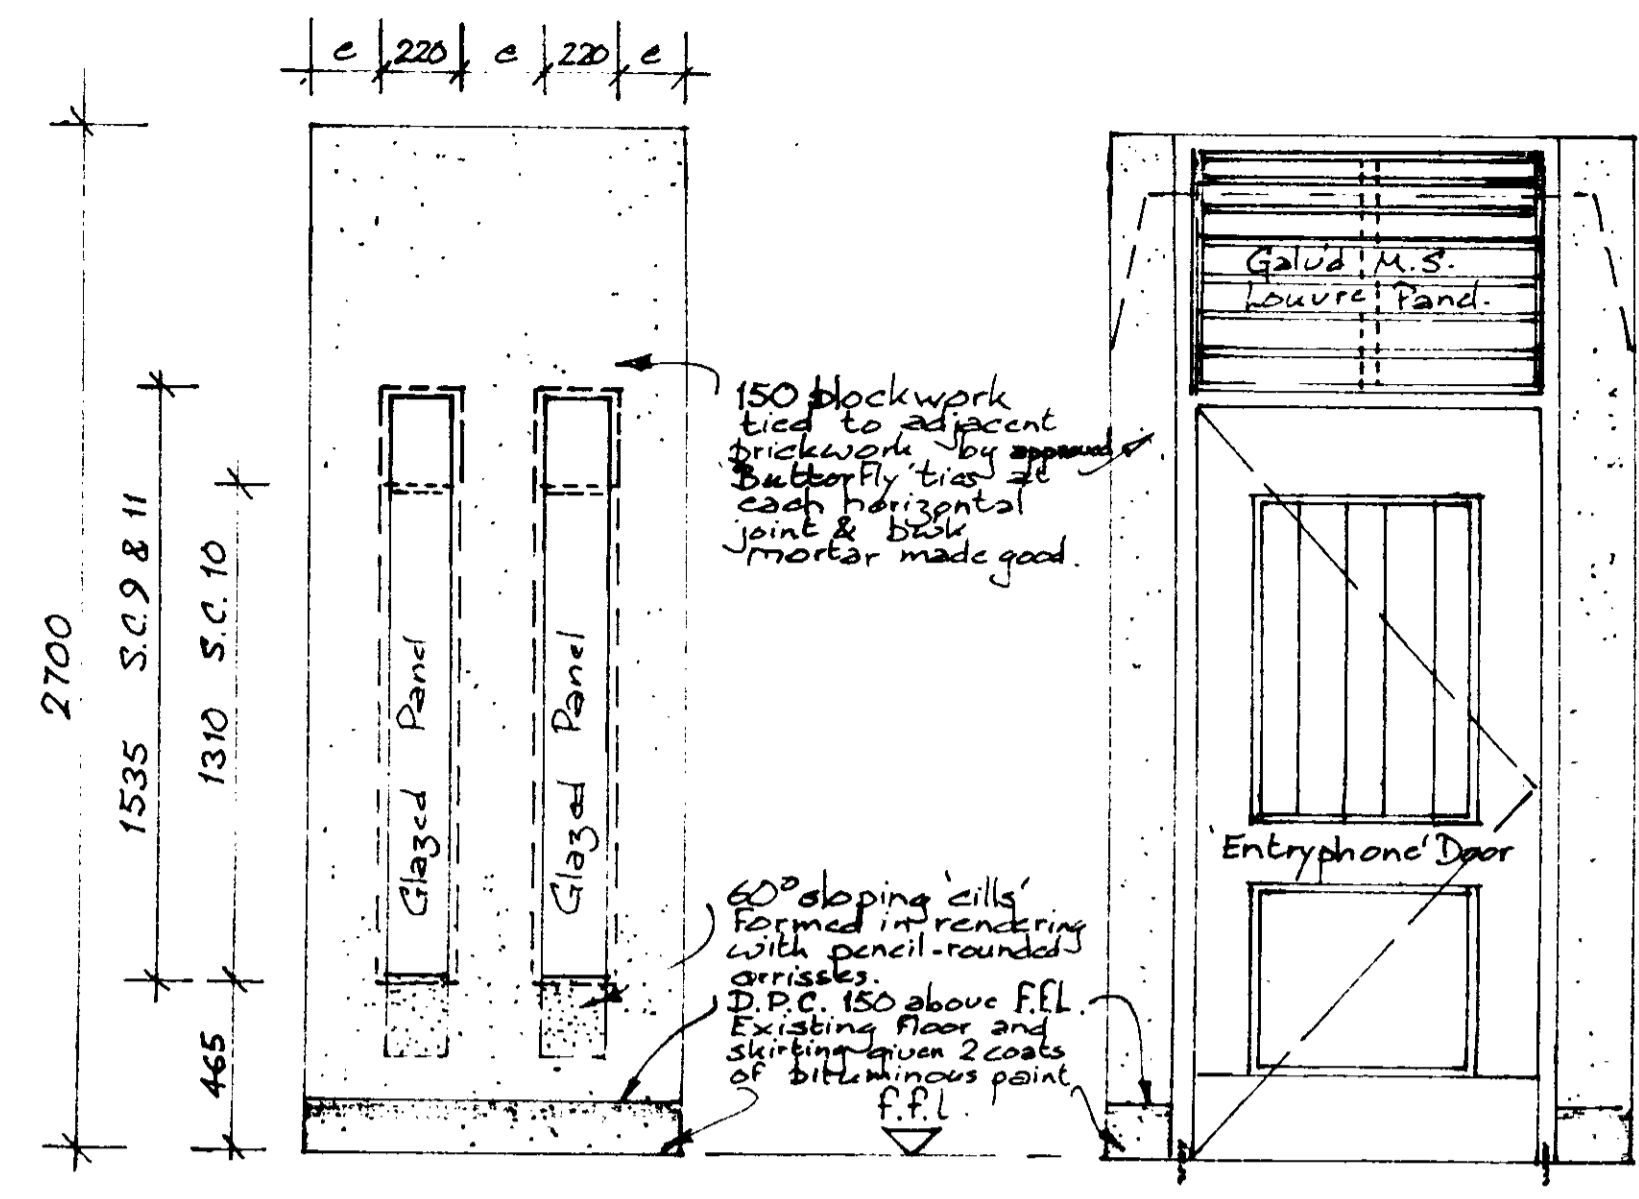 e 220 e 220 e
2700
1535 S.C. 9 & 11
1310 S.C. 10
465
Glazed Panel
Glazed Panel
150 blockwork
tied to adjacent
brickwork by approved
'Butterfly' ties at
each horizontal
joint & bwk
mortar made good.
60° sloping 'cills'
formed in rendering
with pencil-rounded
arrisses.
D.P.C. 150 above f.f.l.
Existing floor and
skirting given 2 coats
of bituminous paint
f.f.l.
Galv'd M.S.
Louvre Panel.
'Entryphone' Door